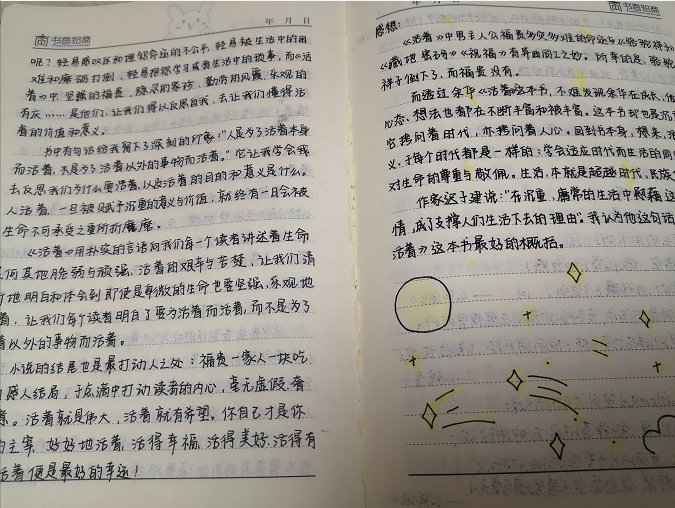 书香短商
年 月 日
呢？轻易感叹和埋怨命运的不公平，轻易被生活中的困
难和磨砺打倒，轻易把学习或者生活中的琐事，而《活
着》中，坚强的福贵，隐忍的家珍，勤劳的凤霞，乐观的
有庆……是他们，让我们得以反思自我，去让我们懂得活
着的价值和意义。
书中有句话给我留下了深刻的印象："人是为了活着本身
而活着，不是为了活着以外的事物而活着。"它让我学会我
去反思我们为什么要活着，以及活着的目的和意义是什么。
人活着，一旦被赋予沉重的意义与价值，就终有一日会被
生命不可承受之重所折磨。
《活着》用朴实的言语向我们每一个读者讲述着生命
何其地脆弱与顽强，活着的艰辛与苦楚，让我们清
地明白和体会到即便是卑微的生命也要坚强、乐观地
着，让我们每个读者明白了要为活着而活着，而不是为了
着以外的事物而活着。
小说的结尾也是最打动人之处：福贵一家人一块吃
感人结局，于点滴中打动读者的内心，毫无虚假、奢
意。活着就是伟大，活着就有希望。你自己才是你
的主宰，好好地活着，活得幸福，活得美好，活得有
活着便是最好的幸运！
年 月 日
书香短商
感想：
《活着》中男主人公福贵多灾多难的命运与《骆驼祥子》
《藏地密码》《祝福》有异曲同工之妙。所幸的是，骆驼
祥子倒下了，而福贵没有。
而透过余华《活着》这本书，不难发现余华在成长，他
心态、想法也都在不断丰富和被丰富。这本书却也是沉
它拷问着时代，亦拷问着人心。回到书本身，想来，
义，于每个时代都是一样的：学会适应时代而生活的同
对生命的尊重与敬佩。生活，本就是超越时代、民族
作家迟子建说："在沉重，庸常的生活中慰藉这
情，成了支撑人们生活下去的理由"。我认为他这句话
活着》这本书最好的概括。